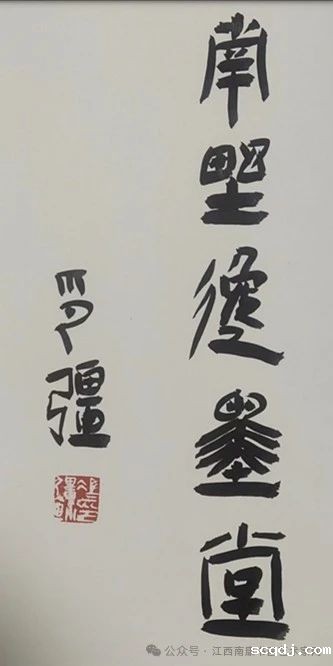 南野墨堂
印疆
公众号 · 江西南
scqdj.com